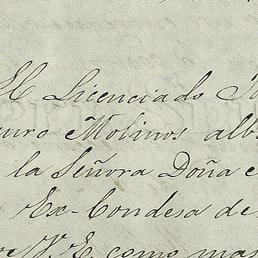 El Licenciado
Molinos
la Señora Doña
Ex-Condesa de
V. E. como mas